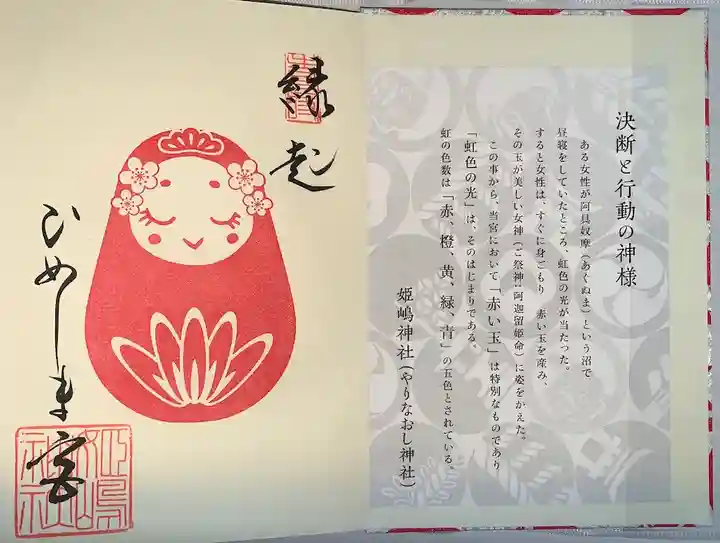 決断と行動の神様
ある女性が阿具奴摩（あぐぬま）という沼で
昼寝をしていたところ、虹色の光が当たった。
すると女性は、すぐに身ごもり 赤い玉を産み、
その玉が美しい女神（ご祭神：阿迦留姫命）に姿をかえた。
この事から、当宮において「赤い玉」は特別なものであり
「虹色の光」は、そのはじまりである。
虹の色数は「赤、橙、黄、緑、青」の五色とされている。
姫嶋神社（やりなおし神社）
縁起
ひめしま宮
姫嶋神社